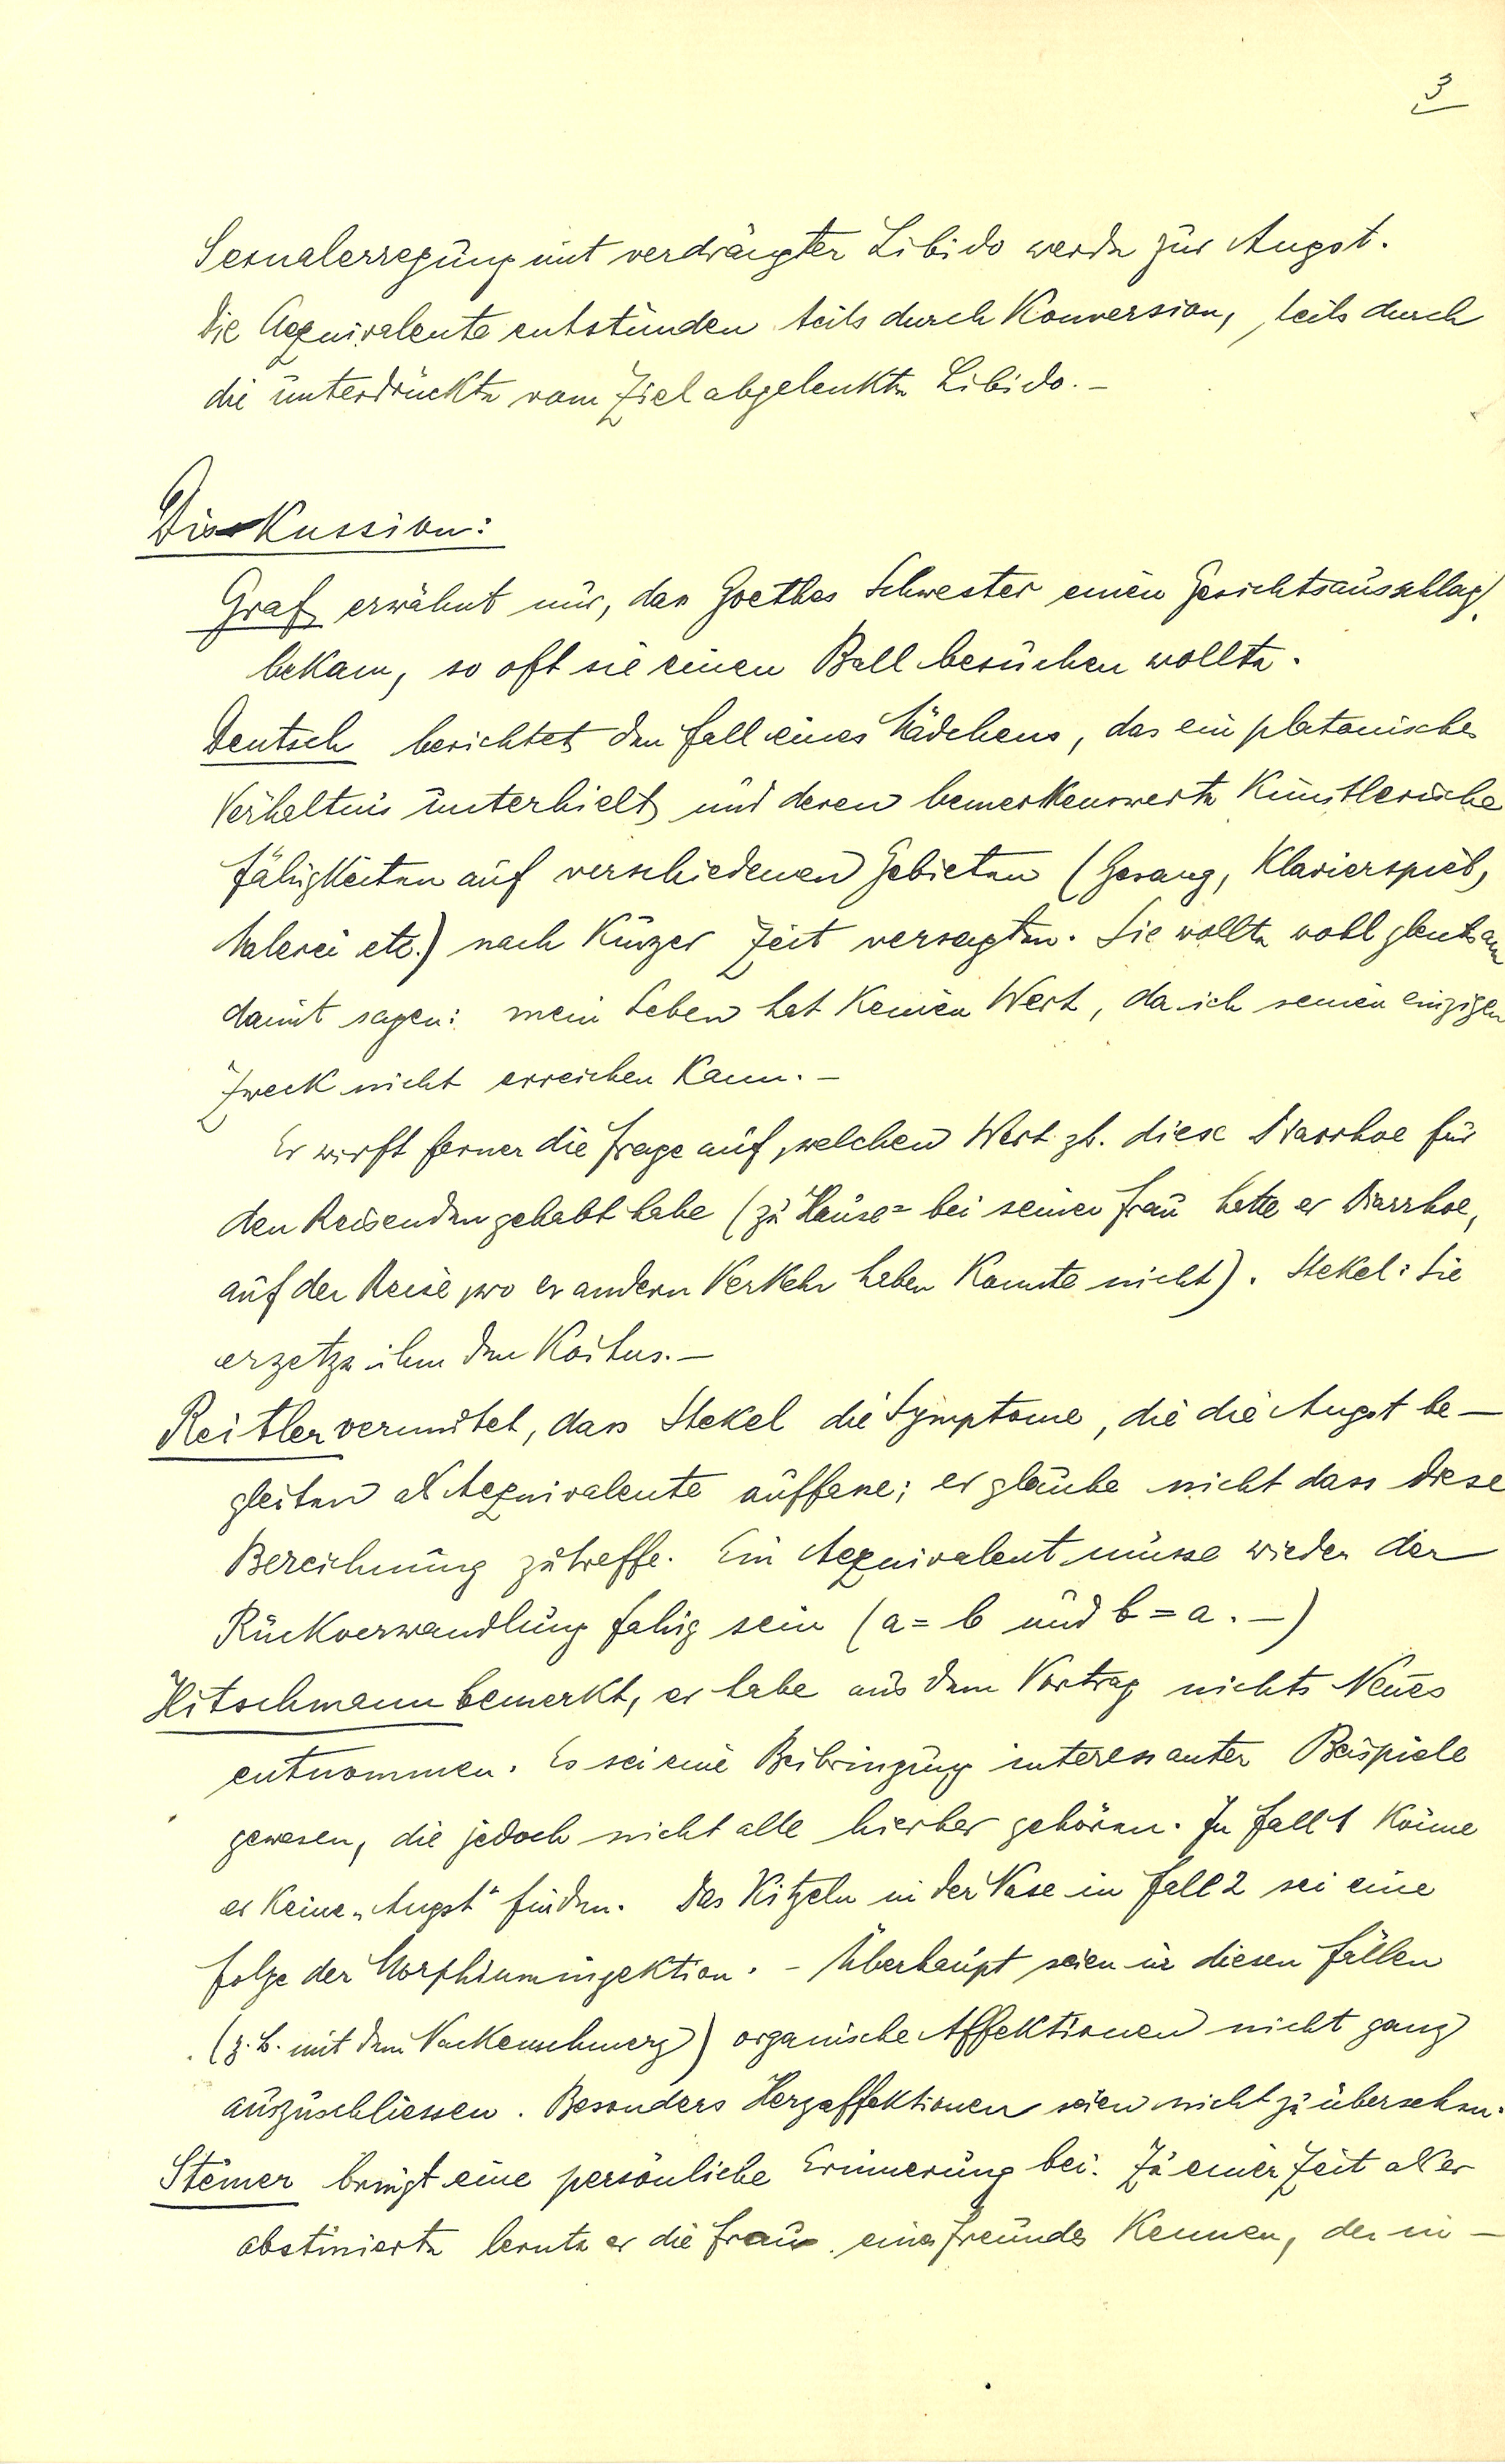 3
Sexualerregung mit verdrängter Libido werde zur Angst.
Die Aequivalente entstünden teils durch Konversion, teils durch
die unterdrückte vom Ziel abgelenkte Libido. –
Diskussion:
Graf erwähnt nur, dass Goethes Schwester einen Gesichtsausschlag
bekam, so oft sie einen Ball besuchen wollte.
Deutsch berichtet den Fall eines Mädchens, das ein platonisches
Verhältnis unterhielt und deren bemerkenswerte künstlerische
Fähigkeiten auf verschiedenen Gebieten (Gesang, Klavierspiel,
Malerei etc.) nach kurzer Zeit versagten. Sie wollte wohl gleichsam
damit sagen: mein Leben hat keinen Wert, da ich seinen einzigen
Zweck nicht erreichen kann. –
Er wirft ferner die Frage auf, welchen Wert zb. diese Diarrhoe für
den Reisenden gehabt habe (zu Hause = bei seiner Frau hatte er Diarrhoe,
auf der Reise, wo er andern Verkehr haben konnte nicht). Stekel: Sie
ersetze ihm den Koitus. –
Reitler vermutet, dass Stekel die Symptome, die die Angst be-
gleiten als Aequivalente auffasse; er glaube nicht dass diese
Bezeichnung zutreffe. Ein Aequivalent müsse wieder der
Rückverwandlung fähig sein (a = b und b = a. –)
Hitschmann bemerkt, er habe aus dem Vortrag nichts Neues
entnommen. Es sei eine Beibringung interessanter Beispiele
gewesen, die jedoch nicht alle hierher gehören. In Fall 1 könne
er keine „Angst" finden. Das Kitzeln in der Nase in Fall 2 sei eine
Folge der Morphiuminjektion. – Überhaupt seien in diesen Fällen
(z. B. mit dem Nackenschmerz) organische Affektionen nicht ganz
auszuschliessen. Besonders Herzaffektionen seien nicht zu übersehen.
Steiner bringt eine persönliche Erinnerung bei. Zu einer Zeit als er
abstinierte lernte er die Frau eines Freundes kennen, der in -